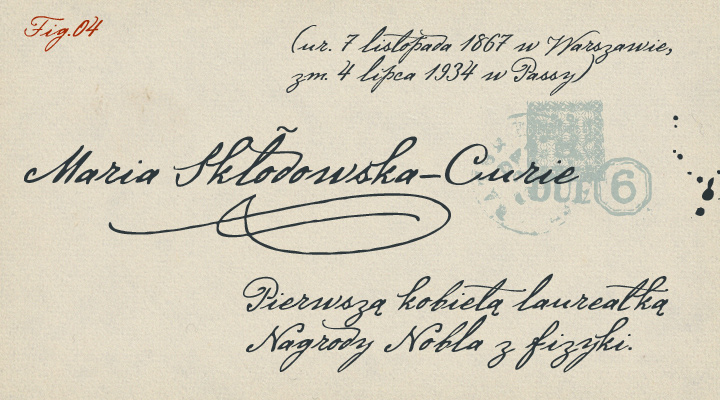 Fig.04
(ur. 7 listopada 1867 w Warszawie,
zm. 4 lipca 1934 w Passy)
Maria Skłodowska-Curie
6
Pierwszą kobietą laureatką
Nagrody Nobla z fizyki.